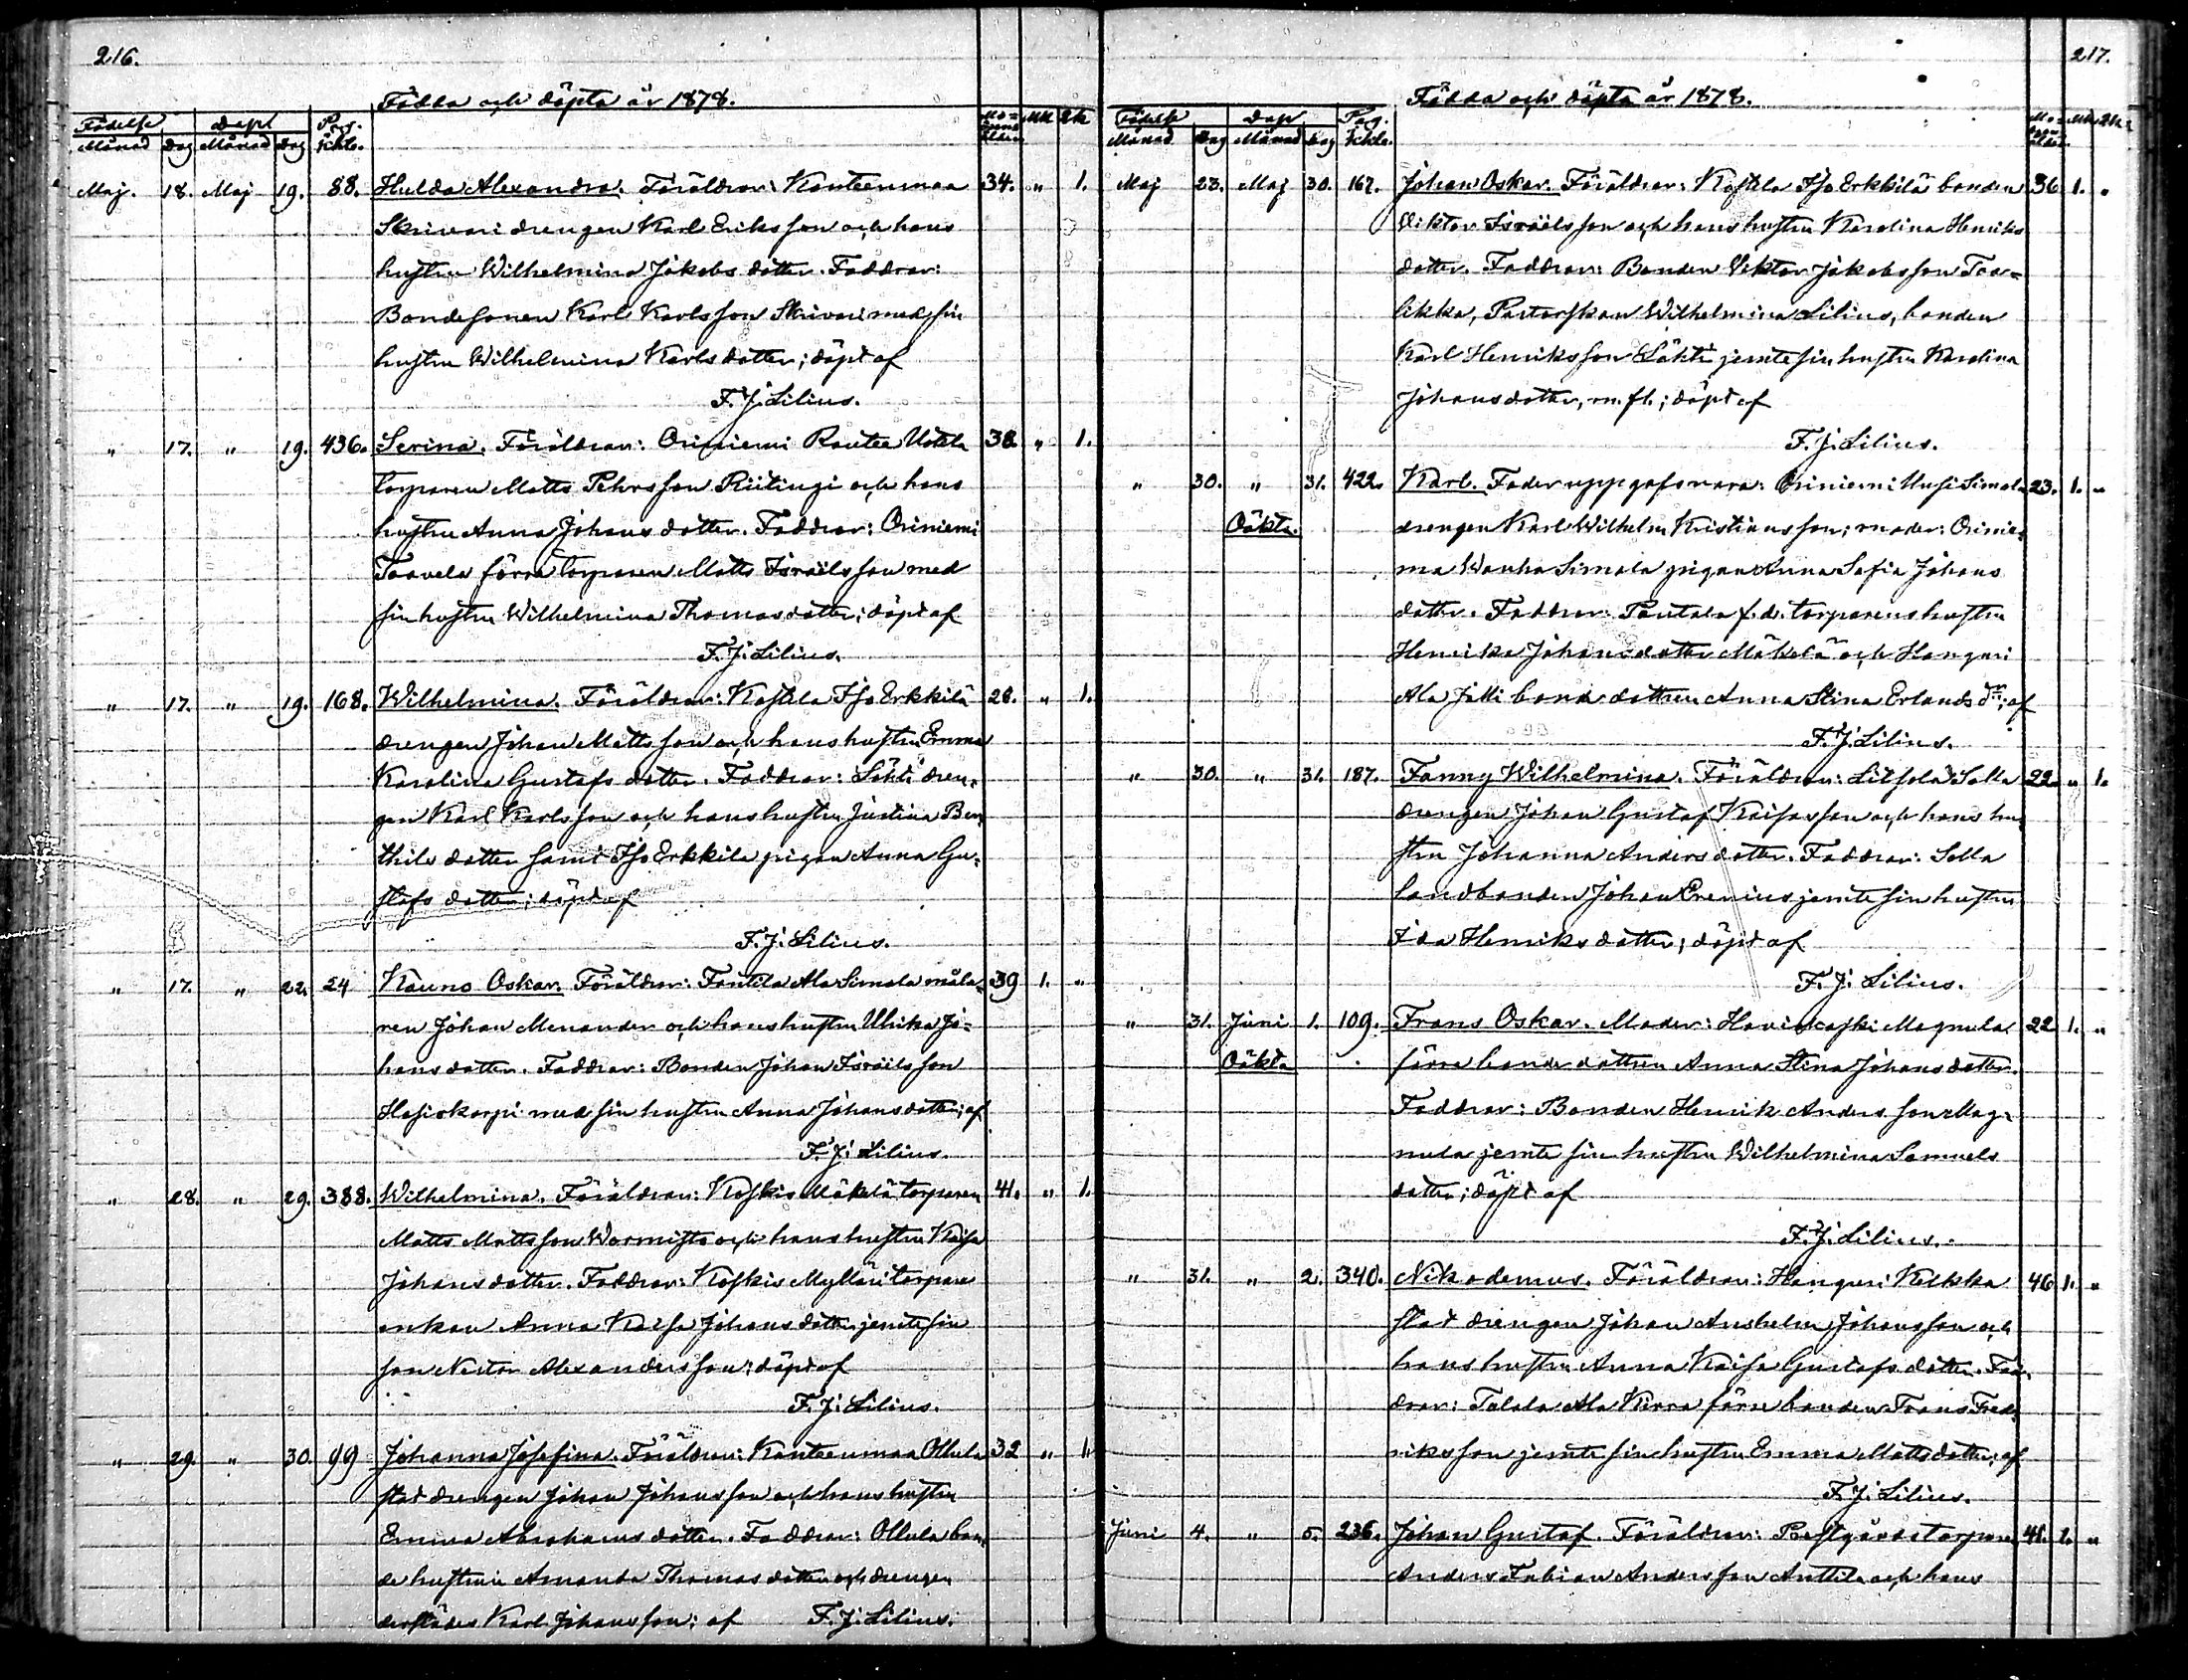 216.
Födda och döpta år 1878.
Födelse Dop Pag. Mo- Mk Qk
Månad Dag Månad Dag
Maj. 18. Maj 19. 88. Hulda Alexandra. Föräldrar: Kanteenmaa 34. " 1.
Skrivari drengen Karl Eriksson och hans
hustru Wilhelmina Jakobs dotter. Faddrar:
Bondesonen Karl Karlsson Skrivari med sin
hustru Wilhelmina Karlsdotter; döpt af
F. J. Lilius.
" 17. " 19. 436. Serina. Föräldrar: Oriniemi Rautee Uotila 38. " 1.
torparen Matts Pehrsson Riitingi och hans
hustru Anna Johans dotter. Faddrar: Oriniemi
Taavela förra torparen Matts Israelsson med
sin hustru Wilhelmina Thomas dotter; döpt af
F. J. Lilius.
" 17. " 19. 168. Wilhelmina. Föräldrar: Kostila Iso Erkkilä 28. " 1.
drengen Johan Mattsson och hans hustru Emma
Karolina Gustafs dotter. Faddrar: Läkti dren-
gen Karl Karlsson och hans hustru Justina Ben-
thils dotter samt Iso Erkkilä pigan Anna Gu-
stafs dotter; döpt af
F. J. Lilius.
" 17. " 22. 24 Kauno Oskar. Föräldrar: Tantila Ala Simola måla- 39 1. "
ren Johan Menander och hans hustru Ulrika Jo-
hans dotter. Faddrar: Bonden Johan Israelsson
Hasiokorpi med sin hustru Anna Johansdotter; af
F. J. Lilius.
" 28. " 29. 388. Wilhelmina. Föräldrar: Koskis Mäkelä torparen 41. " 1.
Matts Mattsson Warmisto och hans hustru Kaisa
Johans dotter. Faddrar: Koskis Myllari torpare
enkan Anna Kaisa Johans dotter jemte sin
son Nestor Alexandersson; döpt af
F. J. Lilius.
" 29. " 30. 99 Johanna Josefina. Föräldrar: Kanteenmaa Ollula 32 " 1.
statdrengen Johan Johansson och hans hustru
Emma Abrahams dotter. Faddrar: Ollula bon-
de hustrun Amanda Thomas dotter och drengen
derstädes Karl Johansson; af F. J. Lilius.
217.
Födda och döpta år 1878.
Födelse Dop Pag. Mo- Mk. Qk.
Månad Dag Månad Dag
Maj 23. Maj 30. 167. Johan Oskar. Föräldrar: Kostila Iso Erkkilä bonden 36 1. "
Viktor Israelsson och hans hustru Karolina Henriks
dotter. Faddrar: Bonden Viktor Jakobsson Toa-
likka, Pastorskan Wilhelmina Lilius, bonden
Karl Henriksson Läkti jemte sin hustru Karolina
Johans dotter, m. fl.; döpt af
F. J. Lilius.
" 30. " 31. 422. Karl. Fader uppgafs vara: Oriniemi Uusi Simola 23. 1. "
Oäkta. drengen Karl Wilhelm Kristiansson; moder: Orinie-
ma Wanha Simola pigan Anna Sofia Johans
dotter. Faddrar: Pantala f. d. torparens hustru
Henrika Johans dotter Mäkelä och Hanguri
Ala Jatti bonde dottren Anna Stina Erlands dr; af
F. J. Lilius.
" 30. " 31. 187. Fanny Wilhelmina. Föräldrar: Litsola Salla 22. " 1.
drengen Johan Gustaf Kaisasson och hans hu-
stru Johanna Anders dotter. Faddrar: Salla
landbonden Johan Erenius jemte sin hustru
Ida Henriks dotter; döpt af
F. J. Lilius.
" 31. Juni 1. 109. Frans Oskar. Moder: Haviokoski Magnula 22 1. "
Oäkta förra bonde dottren Anna Stina Johans dotter.
Faddrar: Bonden Henrik Andersson Mag-
nula jemte sin hustru Wilhelmina Samuels
dotter; döpt af
F. J. Lilius.
" 31. " 2. 340. Nikodemus. Föräldrar: Hanguri Keikka 46 1. "
statdrengen Johan Anshelm Johansson och
hans hustru Anna Kaisa Gustafs dotter. Fad-
drar: Talala Ala Kirra förre bonden Frans Fred-
riksson jemte sin hustru Emma Matts dotter; af
F. J. Lilius.
Juni 4. " 5. 236. Johan Gustaf. Föräldrar: Prestgårds torparen 41. 1. "
Anders Fabian Andersson Anttila och hans